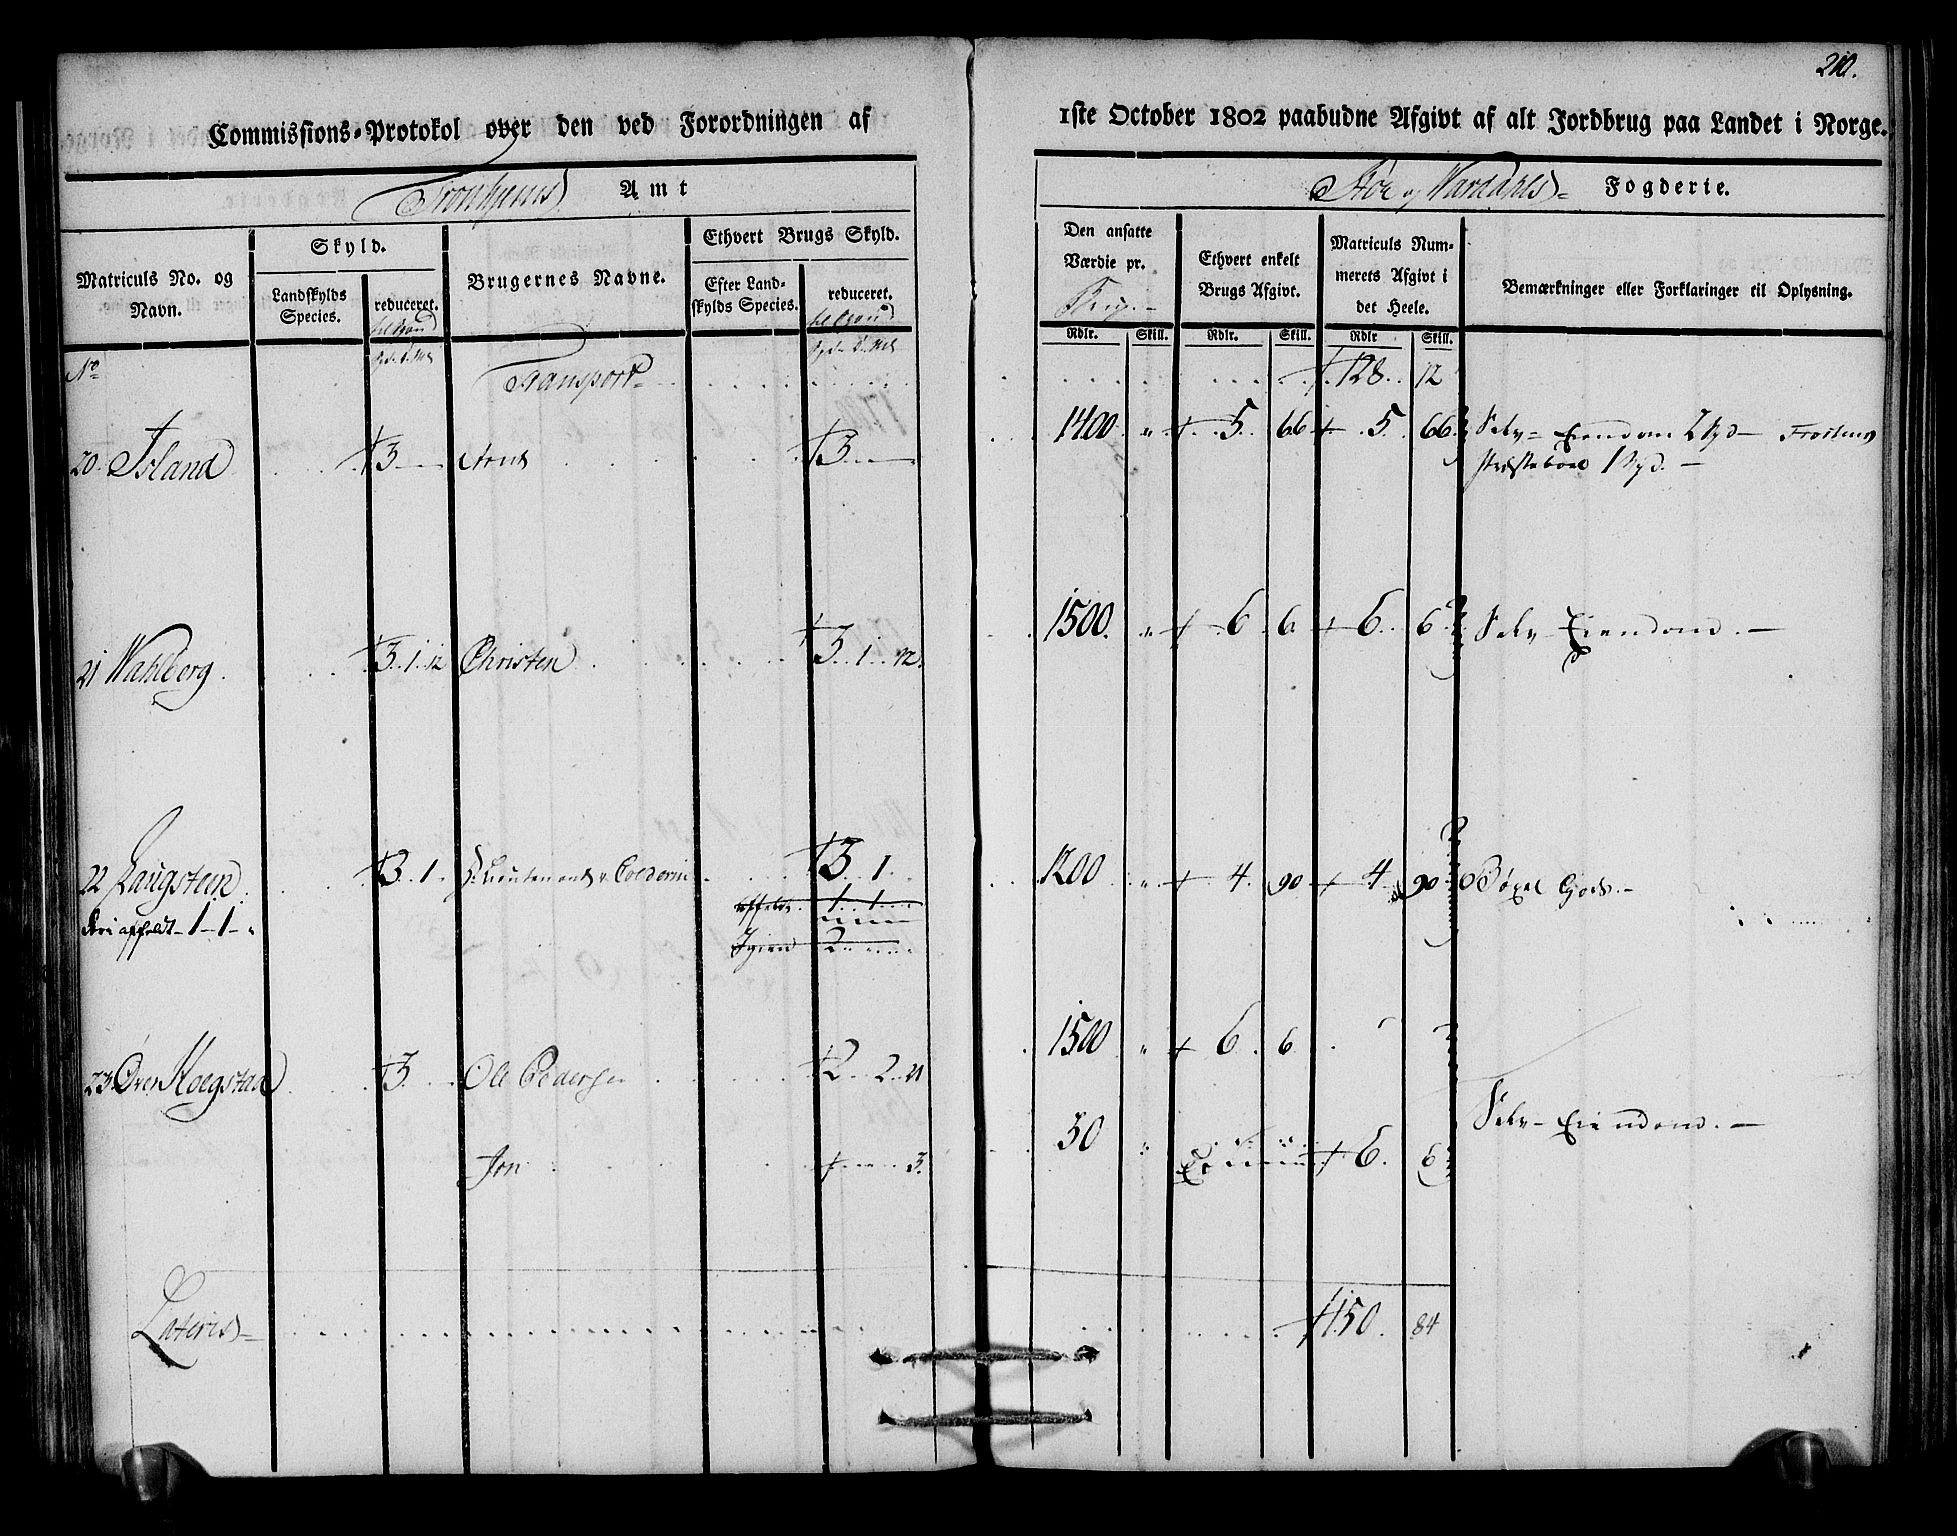 210.
Commissions-Protokol over den ved Forordningen af 1ste October 1802 paabudne Afgivt af alt Jordbrug paa Landet i Norge.
Tronhjems Amt
Stør og Værdahls Fogderie.
Matriculs No. og Navn.
Skyld.
Landskylds Species.
reduceret.
Brugernes Navne.
Ethvert Brugs Skyld.
Efter Landskylds Species.
reduceret.
Den ansatte Værdie pr.
Rdlr. Skill.
Ethvert enkelt Brugs Afgivt.
Rdlr. Skill.
Matriculs Nummerets Afgivt i det Heele.
Rdlr Skill.
Bemærkninger eller Forklaringer til Oplysning.
No
Transport 128. 12
20 Island 3 Arnt 3 1400 " 5 66 5 66 Selv-Eiendom 2 Spd - Frostens
Præsteboel 1 Spd. -
21 Wahlberg 3. 1. 12 Christen 3. 1. 12. 1500. " 6 6 6 6 Selv-Eiendom. -
22 Laugstein 3. 1. 3. 1. 1200 " 4 90 4 90 Gods. -
affeldt - 1 - 1 - "
affeldt 1. 1.
Igien 2
23 Over Moegstad 3 Ole Pedersen 2. 2. 21 1500 " 6 6
Selv-Eiendom. -
Jon 3. 50 " 6. 6
Lateris 150. 84